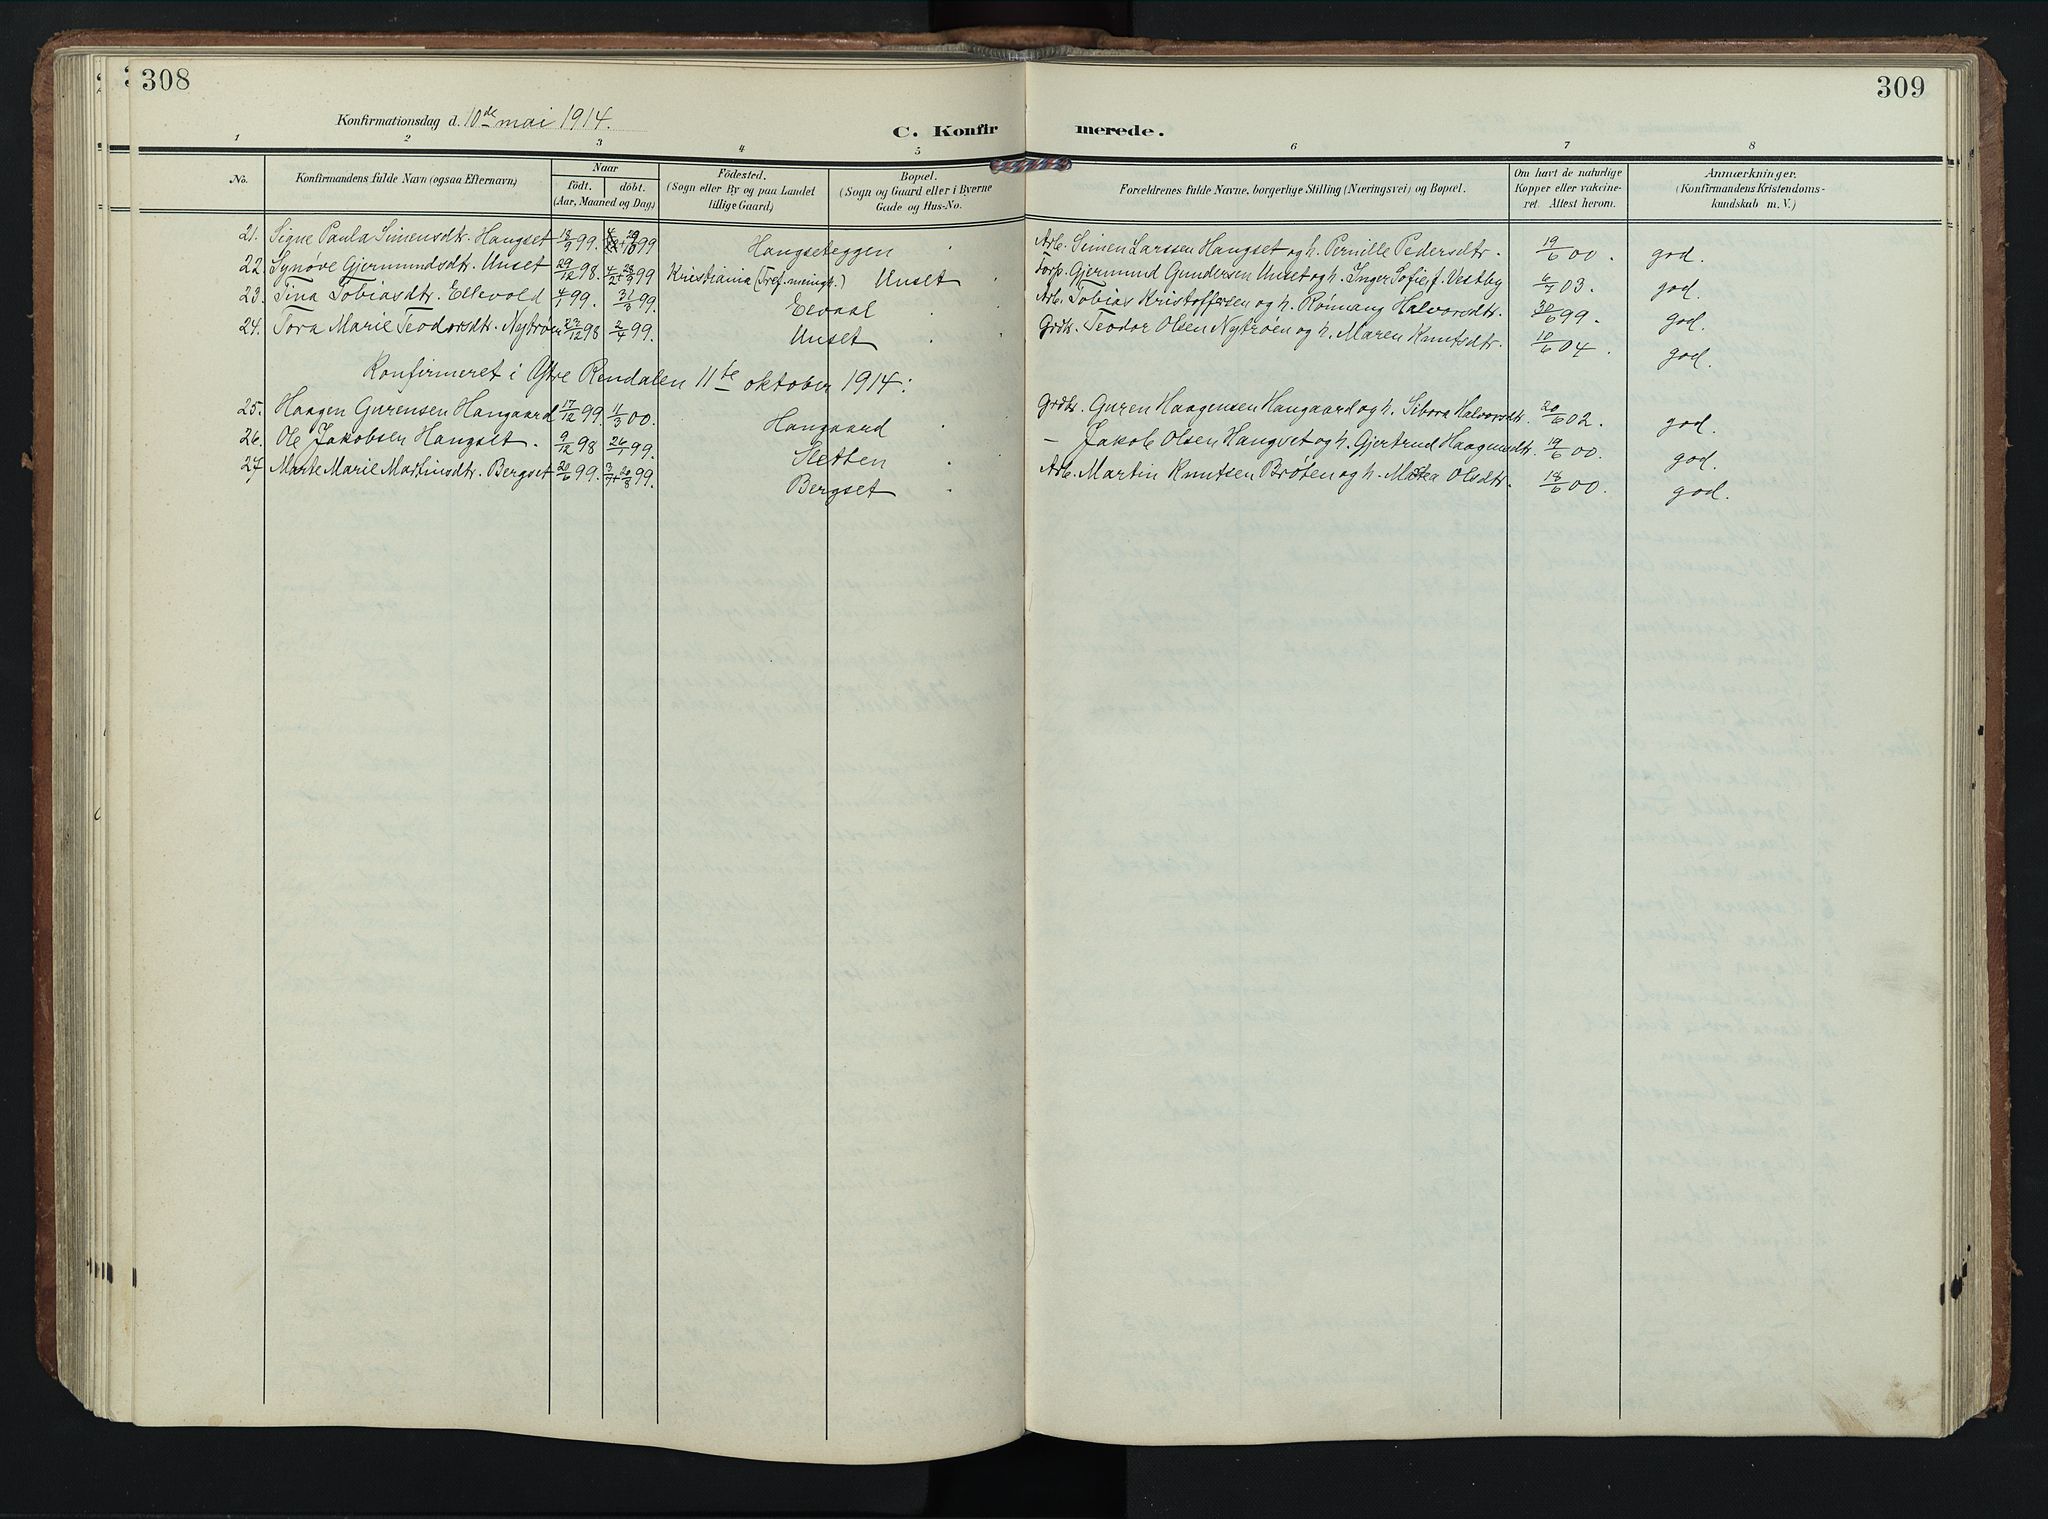 308
309
Konfirmationsdag d. 10de mai 1914.
C. Konfirmerede.
1 2 3 4 5 6 7 8
No.
Konfirmandens fulde Navn (ogsaa Efternavn)
Naar
födt. döbt.
(Aar, Maaned og Dag.)
Födested.
(Sogn eller By og paa Landet
tillige Gaard)
Bopæl.
(Sogn og Gaard eller i Byerne
Gade og Hus-No.
Forældrenes fulde Navne, borgerlige Stilling (Næringsvei) og Bopæl.
Om havt de naturlige
Kopper eller vakcine-
ret. Attest herom.
Anmærkninger.
(Konfirmandens Kristendoms-
kundskab m. V.)
21. Signe Paula Simensdtr. Hangset 13/9 99. 29/10 99 Hangseteggen Arb. Simen Larssen Hangset og h. Pernille Pedersdtr. 19/6 00. god.
22. Synøve Gjermundsdtr. Unset 29/12 98. 99 Kristiania (Tref. menigh.) Unset Torp. Gjermund Gundersen Unset og h. Inger Sofie f. Vestby 6/7 03. god.
23. Tina Tobiasdtr. Ellevold 4/1 99. 31/3 99. Elvaal Arb. Tobias Kristoffersen og h. Rønnaug Halvorsdtr. 30/6 99. god.
24. Tora Marie Teodorsdtr. Nystrøen 22/12 98 2/4 99. Unset Grdb. Teodor Olsen Nystrøen og h. Maren Knutsdtr. 10/6 04. god.
Konfirmeret i Ytre Rendalen 11te oktober 1914:
25. Haagen Gurensen Haugaard 17/12 99. 11/3 00. Haugaard Grdb. Guren Haagensen Haugaard og h. Sibora Halvorsdtr. 20/6 02. god.
26. Ole Jakobsen Hangset. 9/12 98 26/1 99. Sletten – Jakob Olsen Hangset og h. Gjertrud Haagensdtr. 19/6 00. god.
27 Marte Marie Martinsdtr. Bergset 20/6 99. 3/7 + 20/8 99. Bergset Arb. Martin Knutsen Brøten og h. Matea Olsdtr. 18/6 00. god.